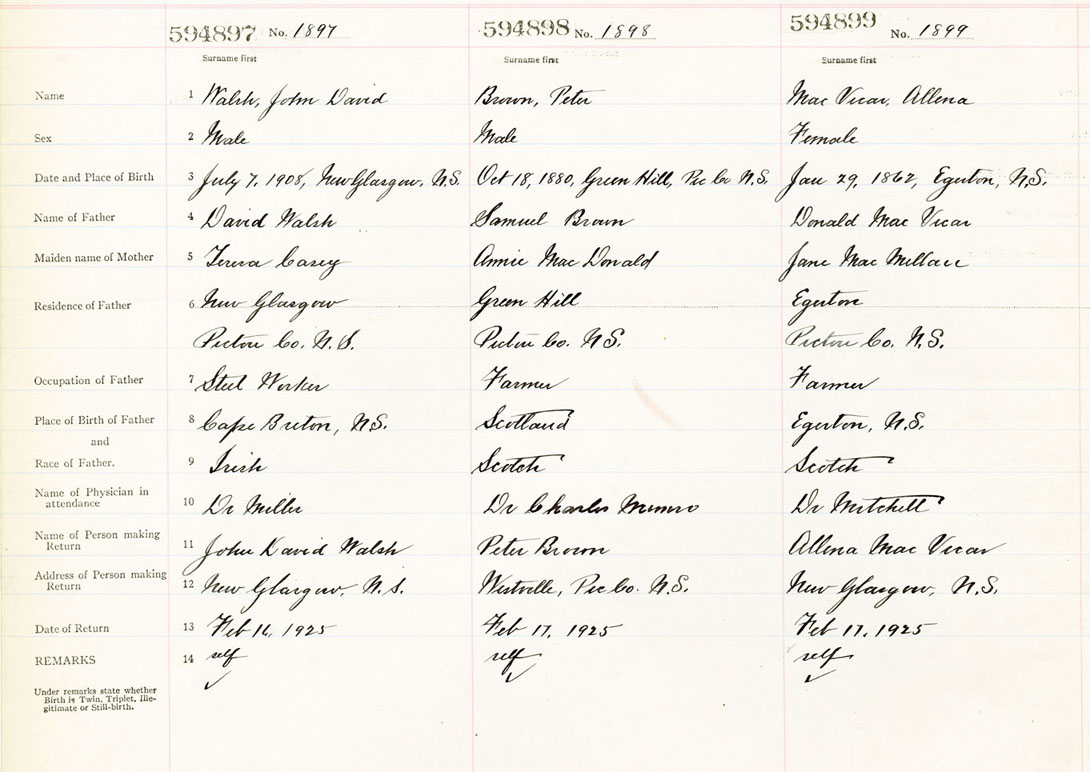 594897 No. 1897 594898 No. 1898 594899 No. 1899
Surname first Surname first Surname first
Name 1 Walsh, John David Brown, Peter Mac Vicar, Allena
Sex 2 Male Male Female
Date and Place of Birth 3 July 7, 1908, New Glasgow, N.S. Oct 18, 1880, Green Hill, Pic Co N.S. Jan 29, 1862, Egerton, N.S.
Name of Father 4 David Walsh Samuel Brown Donald Mac Vicar
Maiden name of Mother 5 Teresa Casey Annie Mac Donald Jane Mac Millan
Residence of Father 6 New Glasgow Green Hill Egerton
Pictou Co. N.S. Pictou Co. N.S. Pictou Co. N.S.
Occupation of Father 7 Steel Worker Farmer Farmer
Place of Birth of Father 8 Cape Breton, N.S. Scotland Egerton, N.S.
and
Race of Father. 9 Irish Scotch Scotch
Name of Physician in
attendance 10 Dr Miller Dr Charles Munro Dr Mitchell
Name of Person making
Return 11 John David Walsh Peter Brown Allena Mac Vicar
Address of Person making
Return 12 New Glasgow, N.S. Westville, Pic Co. N.S. New Glasgow, N.S.
Date of Return 13 Feb 16, 1925 Feb 17, 1925 Feb 17, 1925
REMARKS 14 self self self
Under remarks state whether
Birth is Twin, Triplet, Ille-
gitimate or Still-birth.